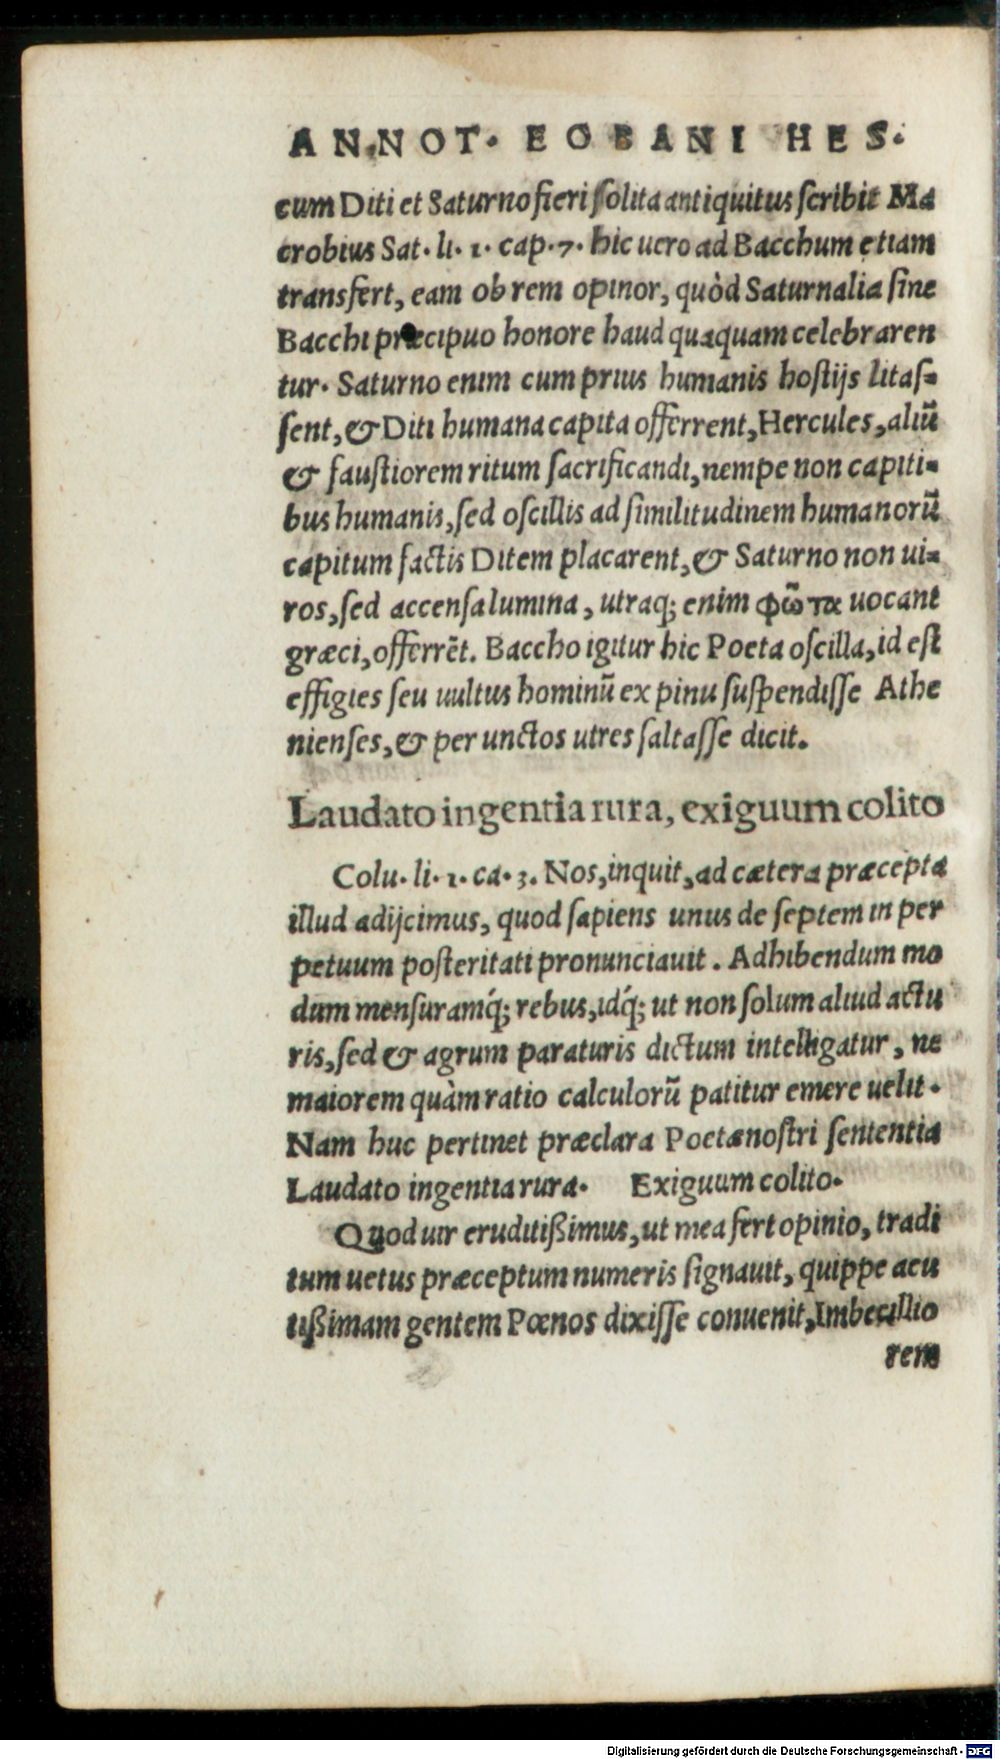 ANNOT. EOBANI HES.
cum Diti et Saturno fieri ſolita antiquitus ſcribit Ma
crobius Sat. li. 1. cap. 7. hic uero ad Bacchum etiam
transfert, eam ob rem opinor, quòd Saturnalia ſine
Bacchi præcipuo honore haud quaquam celebraren
tur. Saturno enim cum prius humanis hoſtijs litaſ-
ſent, & Diti humana capita offerrent, Hercules, aliũ
& fauſtiorem ritum ſacrificandi, nempe non capiti-
bus humanis, ſed oſcillis ad ſimilitudinem humanorũ
capitum factis Ditem placarent, & Saturno non ui-
ros, ſed accenſa lumina, utraq; enim φῶτα uocant
græci, offerrẽt. Baccho igitur hic Poeta oſcilla, id eſt
effigies ſeu uultus hominũ ex pinu ſuſpendiſſe Athe
nienſes, & per unctos utres ſaltaſſe dicit.
Laudato ingentia rura, exiguum colito
Colu. li. 1. ca. 3. Nos, inquit, ad cætera præcepta
illud adijcimus, quod ſapiens unus de ſeptem in per
petuum poſteritati pronunciauit. Adhibendum mo
dum menſuramq́; rebus, idq́; ut non ſolum aliud actu
ris, ſed & agrum paraturis dictum intelligatur, ne
maiorem quàm ratio calculorũ patitur emere uelit.
Nam huc pertinet præclara Poetæ noſtri ſententia
Laudato ingentia rura. Exiguum colito.
Quod uir eruditißimus, ut mea fert opinio, tradi
tum uetus præceptum numeris ſignauit, quippe acu
tißimam gentem Pœnos dixiſſe conuenit, Imbecillio
rem
Digitalisierung gefördert durch die Deutsche Forschungsgemeinschaft - DFG